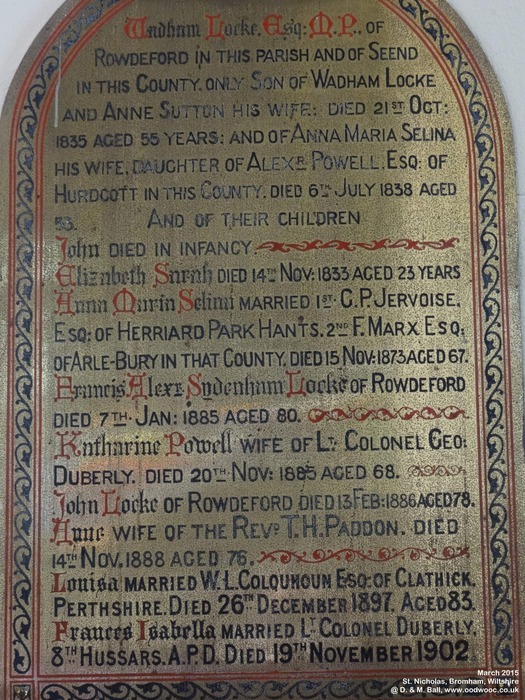 Wadham Locke, Esq: M.P., OF
ROWDEFORD IN THIS PARISH AND OF SEEND
IN THIS COUNTY. ONLY SON OF WADHAM LOCKE
AND ANNE SUTTON HIS WIFE: DIED 21ST OCT:
1835 AGED 55 YEARS: AND OF ANNA MARIA SELINA
HIS WIFE, DAUGHTER OF ALEXR POWELL, ESQ: OF
HURDCOTT IN THIS COUNTY. DIED 6TH JULY 1838 AGED
53. AND OF THEIR CHILDREN
John DIED IN INFANCY.
Elizabeth Sarah DIED 14TH NOV: 1833 AGED 23 YEARS
Anna Maria Selina MARRIED 1ST C.P. JERVOISE,
ESQ: OF HERRIARD PARK HANTS. 2ND F. MARX ESQ:
OF ARLE-BURY IN THAT COUNTY. DIED 15 NOV: 1873 AGED 67.
Francis Alexr Sydenham Locke OF ROWDEFORD
DIED 7TH JAN: 1885 AGED 80.
Katharine Powell WIFE OF LT COLONEL GEO:
DUBERLY. DIED 20TH NOV: 1885 AGED 68.
John Locke OF ROWDEFORD DIED 13 FEB: 1886 AGED 78.
Anne WIFE OF THE REVD T.H. PADDON. DIED
14TH NOV. 1888 AGED 76.
Louisa MARRIED W.L. COLQUHOUN ESQ: OF CLATHICK,
PERTHSHIRE. DIED 26TH DECEMBER 1897. AGED 83.
Frances Isabella MARRIED LT COLONEL DUBERLY,
8TH HUSSARS. A.P.D. DIED 19TH NOVEMBER 1902.
March 2015
St. Nicholas, Bromham, Wiltshire
@ D. & M. Ball, www.oodwooc.co.uk